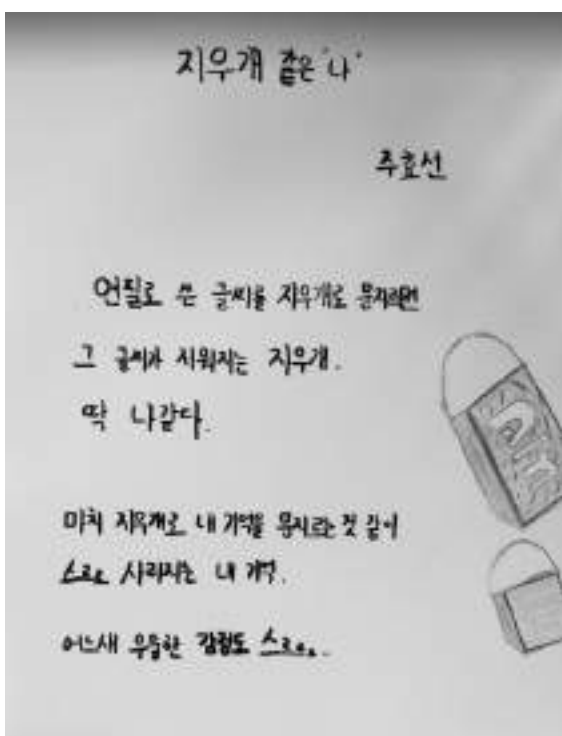 지우개 같은 '나'
주효선
연필로 쓴 글씨를 지우개로 문지르면
그 글씨가 지워지는 지우개.
딱 나같다.
마치 지우개로 내 기억을 문지르는 것 같이
스르르 사라지는 내 기억.
어느새 우울한 감정도 스르르.
Air